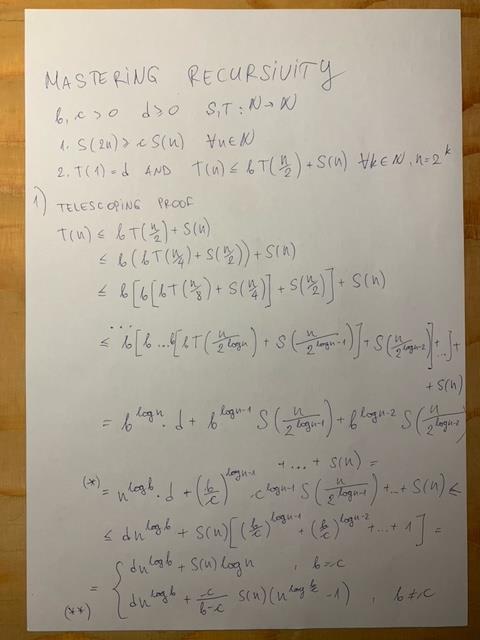 MASTERING RECURSIVITY
b, c > 0 d ≥ 0 S, T : ℕ → ℕ
1. S(2n) ≥ c S(n) ∀n ∈ ℕ
2. T(1) = d AND T(n) ≤ b T(n/2) + S(n) ∀k ∈ ℕ, n = 2^k
1) TELESCOPING PROOF
T(n) ≤ b T(n/2) + S(n)
≤ b (b T(n/4) + S(n/2)) + S(n)
≤ b [b [b T(n/8) + S(n/4)] + S(n/2)] + S(n)
...
≤ b [b ... b [b T(n/2^{log n}) + S(n/2^{log n-1})] + S(n/2^{log n-2})] + ...] +
+ S(n)
= b^{log n} · d + b^{log n-1} S(n/2^{log n-1}) + b^{log n-2} S(n/2^{log n-2})
+ ... + S(n) =
(*) = n^{log b} · d + (b/c)^{log n-1} · c^{log n-1} S(n/2^{log n-1}) + ... + S(n) ≤
≤ d n^{log b} + S(n) [(b/c)^{log n-1} + (b/c)^{log n-2} + ... + 1] =
(**) = { d n^{log b} + S(n) log n , b = c
d n^{log b} + c/(b-c) S(n) (n^{log b/c} - 1) , b ≠ c